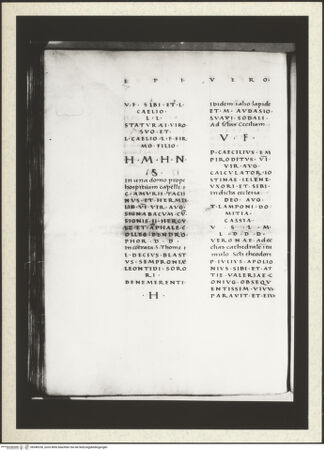 E P I V E R O
V·F· SIBI· ET· L
CAELIO·
L· L·
STATVRAE· VIRO
SVO· ET·
L· CAELIO· L· F· FIR
MO FILIO·
H·M·H·N
S
In una domo prope
hospitium capelli:
C· AMVRIS· TACIT
NVS· ET· HERMES
VI· VIR· AVG
SIGNA BACVM· CV
ET
COLLEG· DENDRO
PHOR· D· D·
In contrata S· Thome:
L· DECIVS· BLAST
VS· SEMPRONIAE
LEONTIDI· SORO
RI·
BENEMERENTI·
· H ·
Ibidem· i alio lapide
ET· M· AVDASIO·
SVAVI· SODALI·
V · F ·
P· CAECILIVS· EM
PIRODITVS· VI
VIR· AVG·
CALCVLATOR· IO
STINAE· IELENE·
VXORI· ET· SIBI·
In dicta ecclesia·
DEO· AVG·
T· LAMPONI· DO
MITIA·
CASSIA·
V· S· L· M·
L· D· D· D·
VERONAE· Ad ec
clesiam cathedrale i tu
mulo· Scti· theodori·
P· IVLIVS· APOLIO
NIVS· SIBI· ET· AT
TIE· VALERIAE· C
ONIVG· OBSEQV
ENTISSIM· VIVVS·
PARAVIT· ET· EIVS